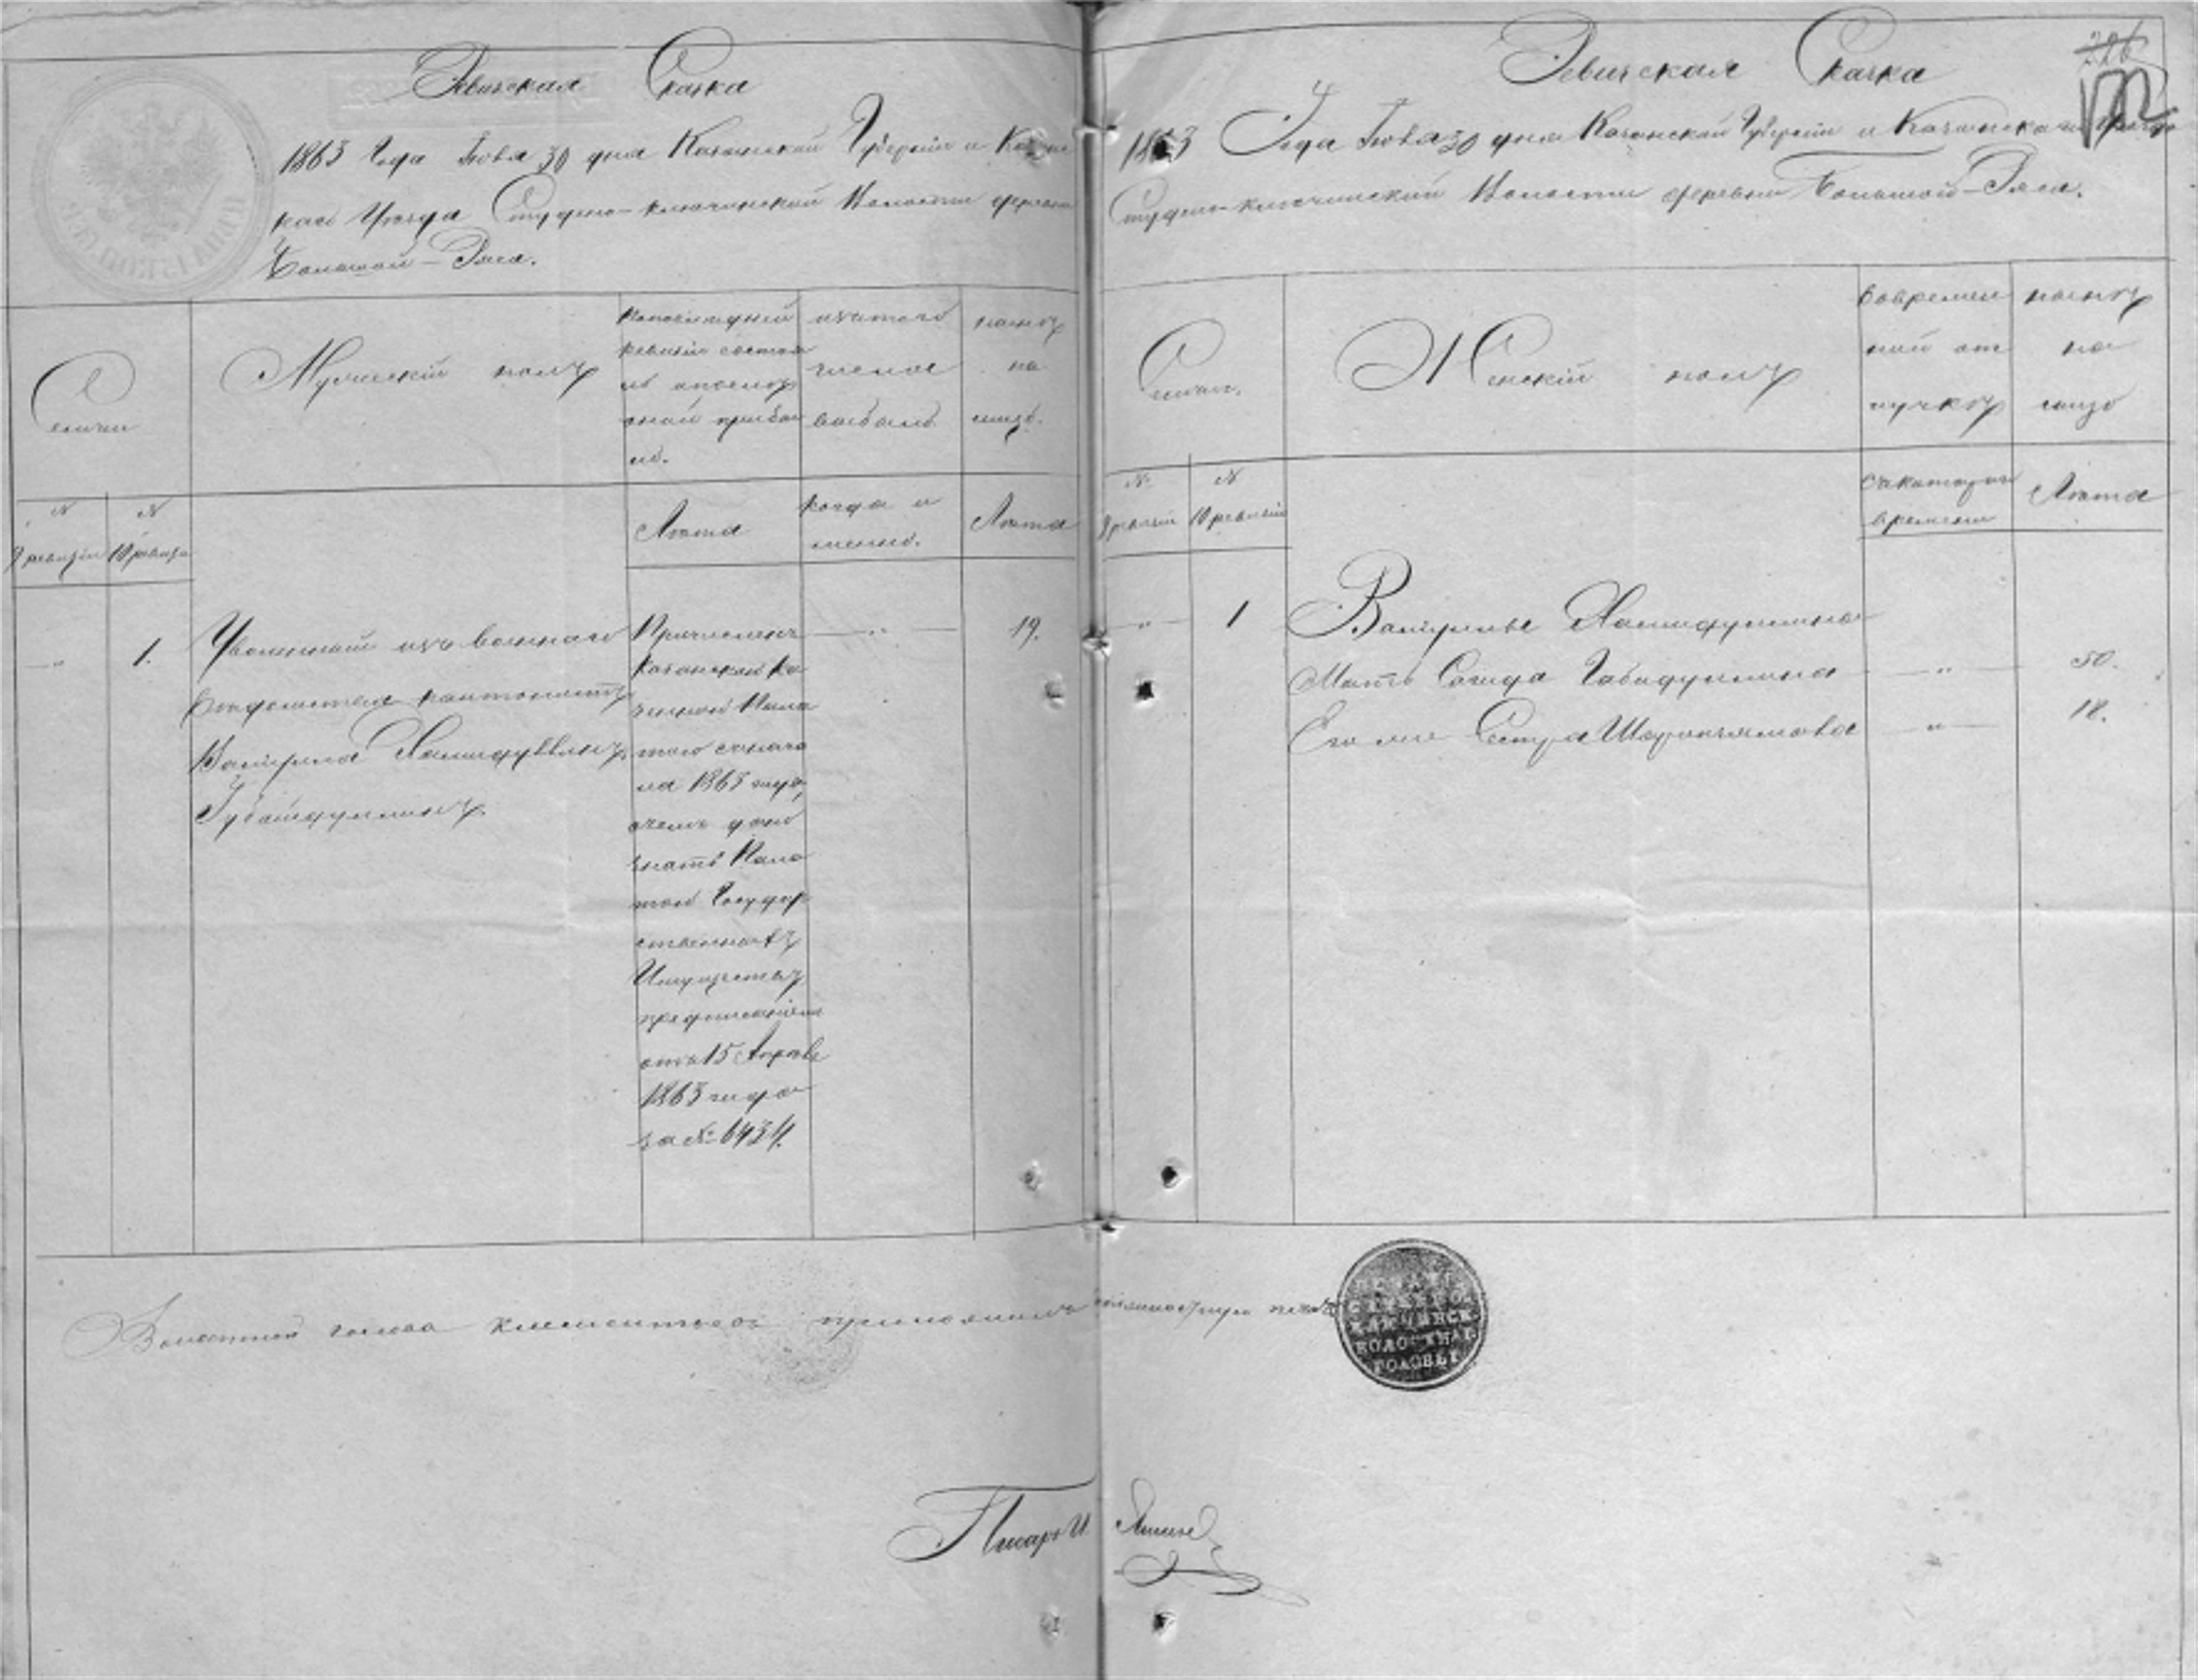 Ревизская Сказка
1863 Года Июля 30 дня Казанской Губернии и Казан
каго Уезда Студено-ключинской Волости деревни
Большой-Ряса.
Семьи
Мужескій полъ
По последней
ревизіи состоя
ло и после
оной прибы
ло.
изъ того
числа
выбыло
ныне
на
лицо.
N
9 ревизіи
N
10 ревизіи
Лета
когда и
именно.
Лета
1.
Уволенный изъ военнаго
ведомства кантонистъ
Валиулла Хамидуллинъ
Губайдуллинъ
Причисленъ
Казанской Ка
зенной Пала
тою съ нача
ла 1863 года,
о чемъ дано
знать Пала
той Государ
ственныхъ
Имуществъ
предписаніемъ
отъ 15 Апреля
1863 года
за № 6434.
19.
Ревизская Сказка
1863 Года Июля 30 дня Казанской Губерніи и Казанскаго Уезда
Студено-ключинской Волости деревни Большой-Ряса.
Семьи.
Женскій полъ
Во времен
ной от
лучке
ныне
на
лицо
№
9 ревизіи
N
10 ревизіи
съ котораго
времени
Лета
1
Валиуллы Хамидуллина
Мать Сагида Габидуллина
50.
Его же Сестра
18.
Волостной голова приложилъ печать
ПЕЧАТЬ
СТУДЕНО
КЛЮЧИНСК.
ВОЛОСТНАГ.
ГОЛОВЫ
Писарь И.